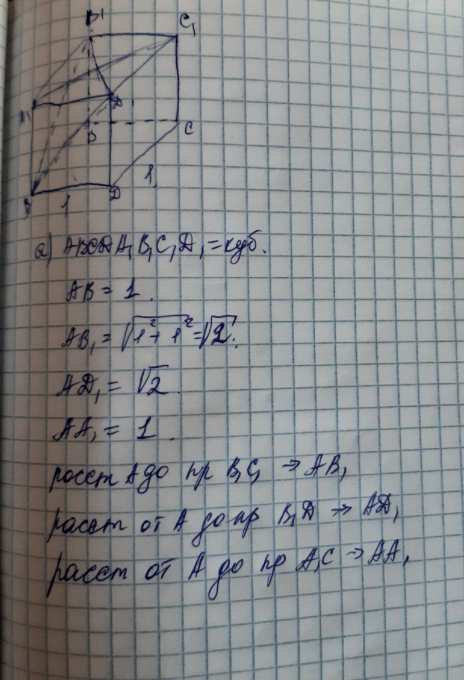 B₁ C₁
A₁ D₁
B C
D
1 1
а) ABCDA₁B₁C₁D₁ = куб.
AB = 1.
AB₁ = √1² + 1² = √2.
AD₁ = √2.
AA₁ = 1.
расст A до пр B₁C₁ → AB₁
расст от A до пр B₁D → AD₁
расст от A до пр A₁C → AA₁